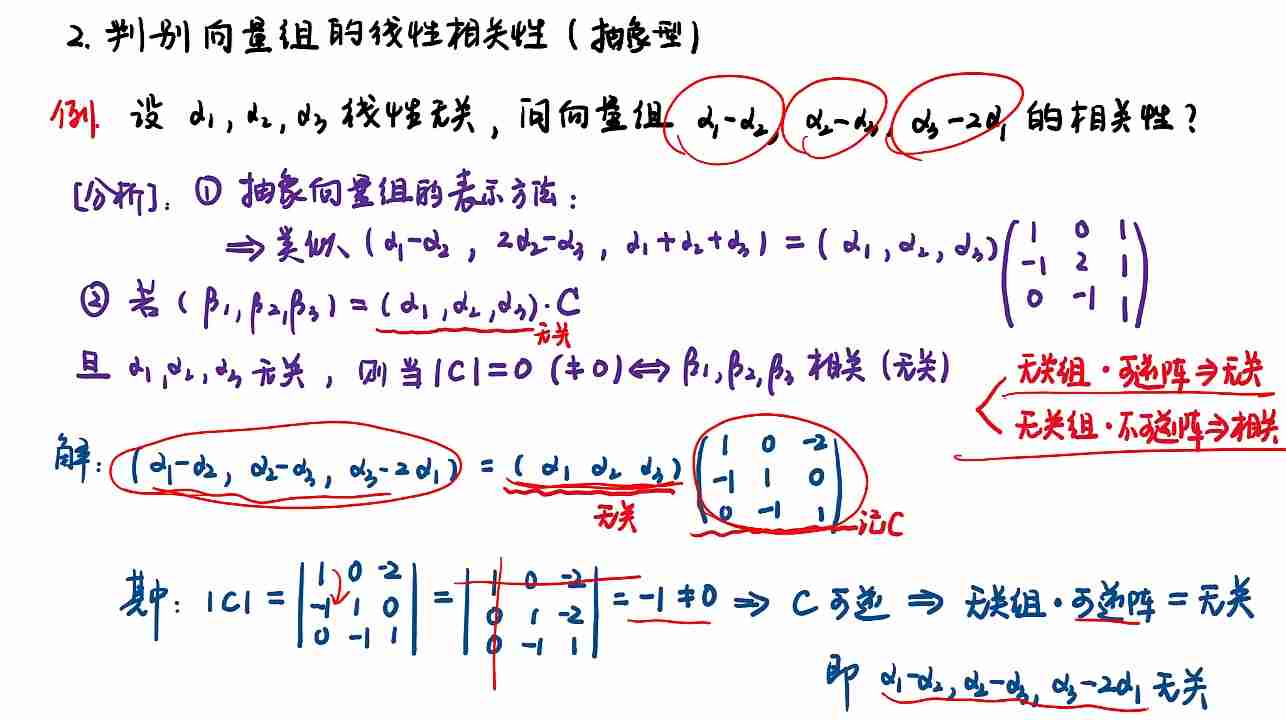 2. 判别向量组的线性相关性（抽象型）
例. 设 α₁, α₂, α₃ 线性无关，问向量组 α₁-α₂, α₂-α₃, α₃-2α₁ 的相关性？
[分析]: ① 抽象向量组的表示方法：
⇒ 类似 (α₁-α₂, 2α₂-α₃, α₁+α₂+α₃) = (α₁, α₂, α₃)
1 0 1
-1 2 1
0 -1 1
② 若 (β₁, β₂, β₃) = (α₁, α₂, α₃)·C
无关
且 α₁, α₂, α₃ 无关，则当 |C|=0 (≠0) ⇔ β₁, β₂, β₃ 相关 (无关)
无关组·可逆阵⇒无关
无关组·不可逆阵⇒相关
解: (α₁-α₂, α₂-α₃, α₃-2α₁) = (α₁ α₂ α₃)
1 0 -2
-1 1 0
0 -1 1
无关
记C
其中: |C| =
1 0 -2
-1 1 0
0 -1 1
=
1 0 -2
0 1 -2
0 -1 1
= -1 ≠ 0 ⇒ C 可逆 ⇒ 无关组·可逆阵 = 无关
即 α₁-α₂, α₂-α₃, α₃-2α₁ 无关